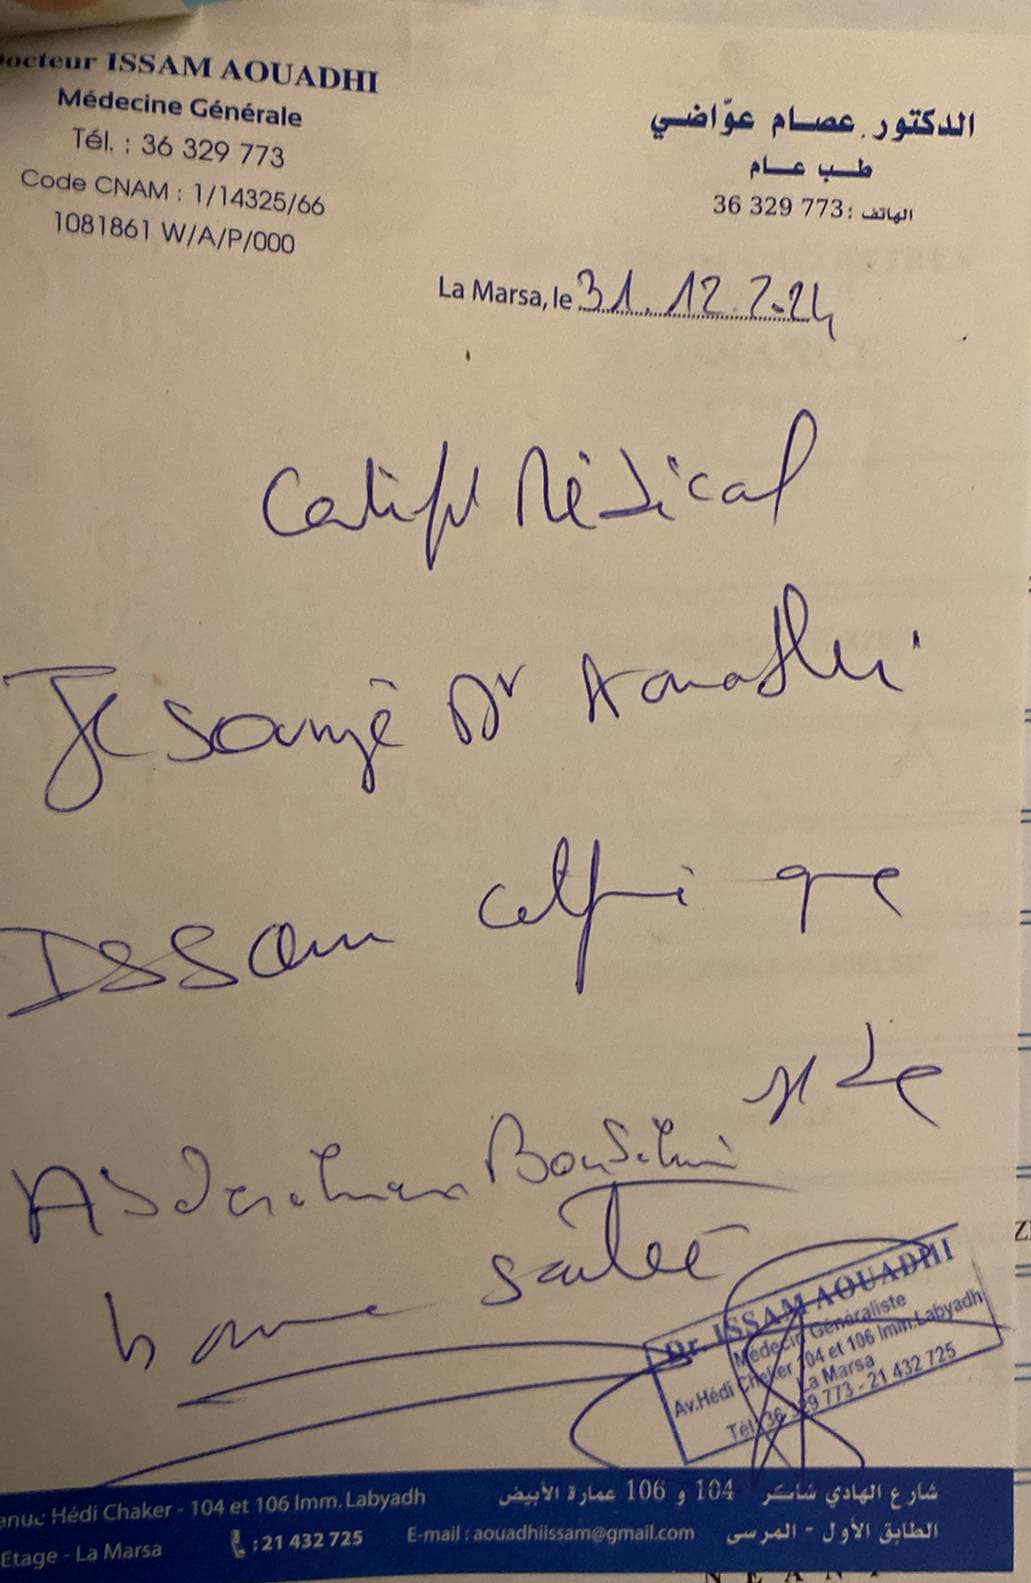 Docteur ISSAM AOUADHI
Médecine Générale
Tél. : 36 329 773
Code CNAM : 1/14325/66
1081861 W/A/P/000
الدكتور عصام عوّاضي
طب عام
الهاتف : 36 329 773
La Marsa, le 31.12.2024
Certificat Médical
Je soussigné Dr Aouadhi
Issam certifie que
est de
Abderahman
bonne santé
Dr. ISSAM AOUADHI
Médecin Généraliste
Av.Hédi Cheker 104 et 106 Imm.Labyadh
La Marsa
Tél : 36 329 773 - 21 432 725
Hédi Chaker - 104 et 106 Imm. Labyadh
Etage - La Marsa
: 21 432 725
E-mail : aouadhiissam@gmail.com
شارع الهادي شاكر 104 و 106 عمارة الأبيض
الطابق الأول - المرسى